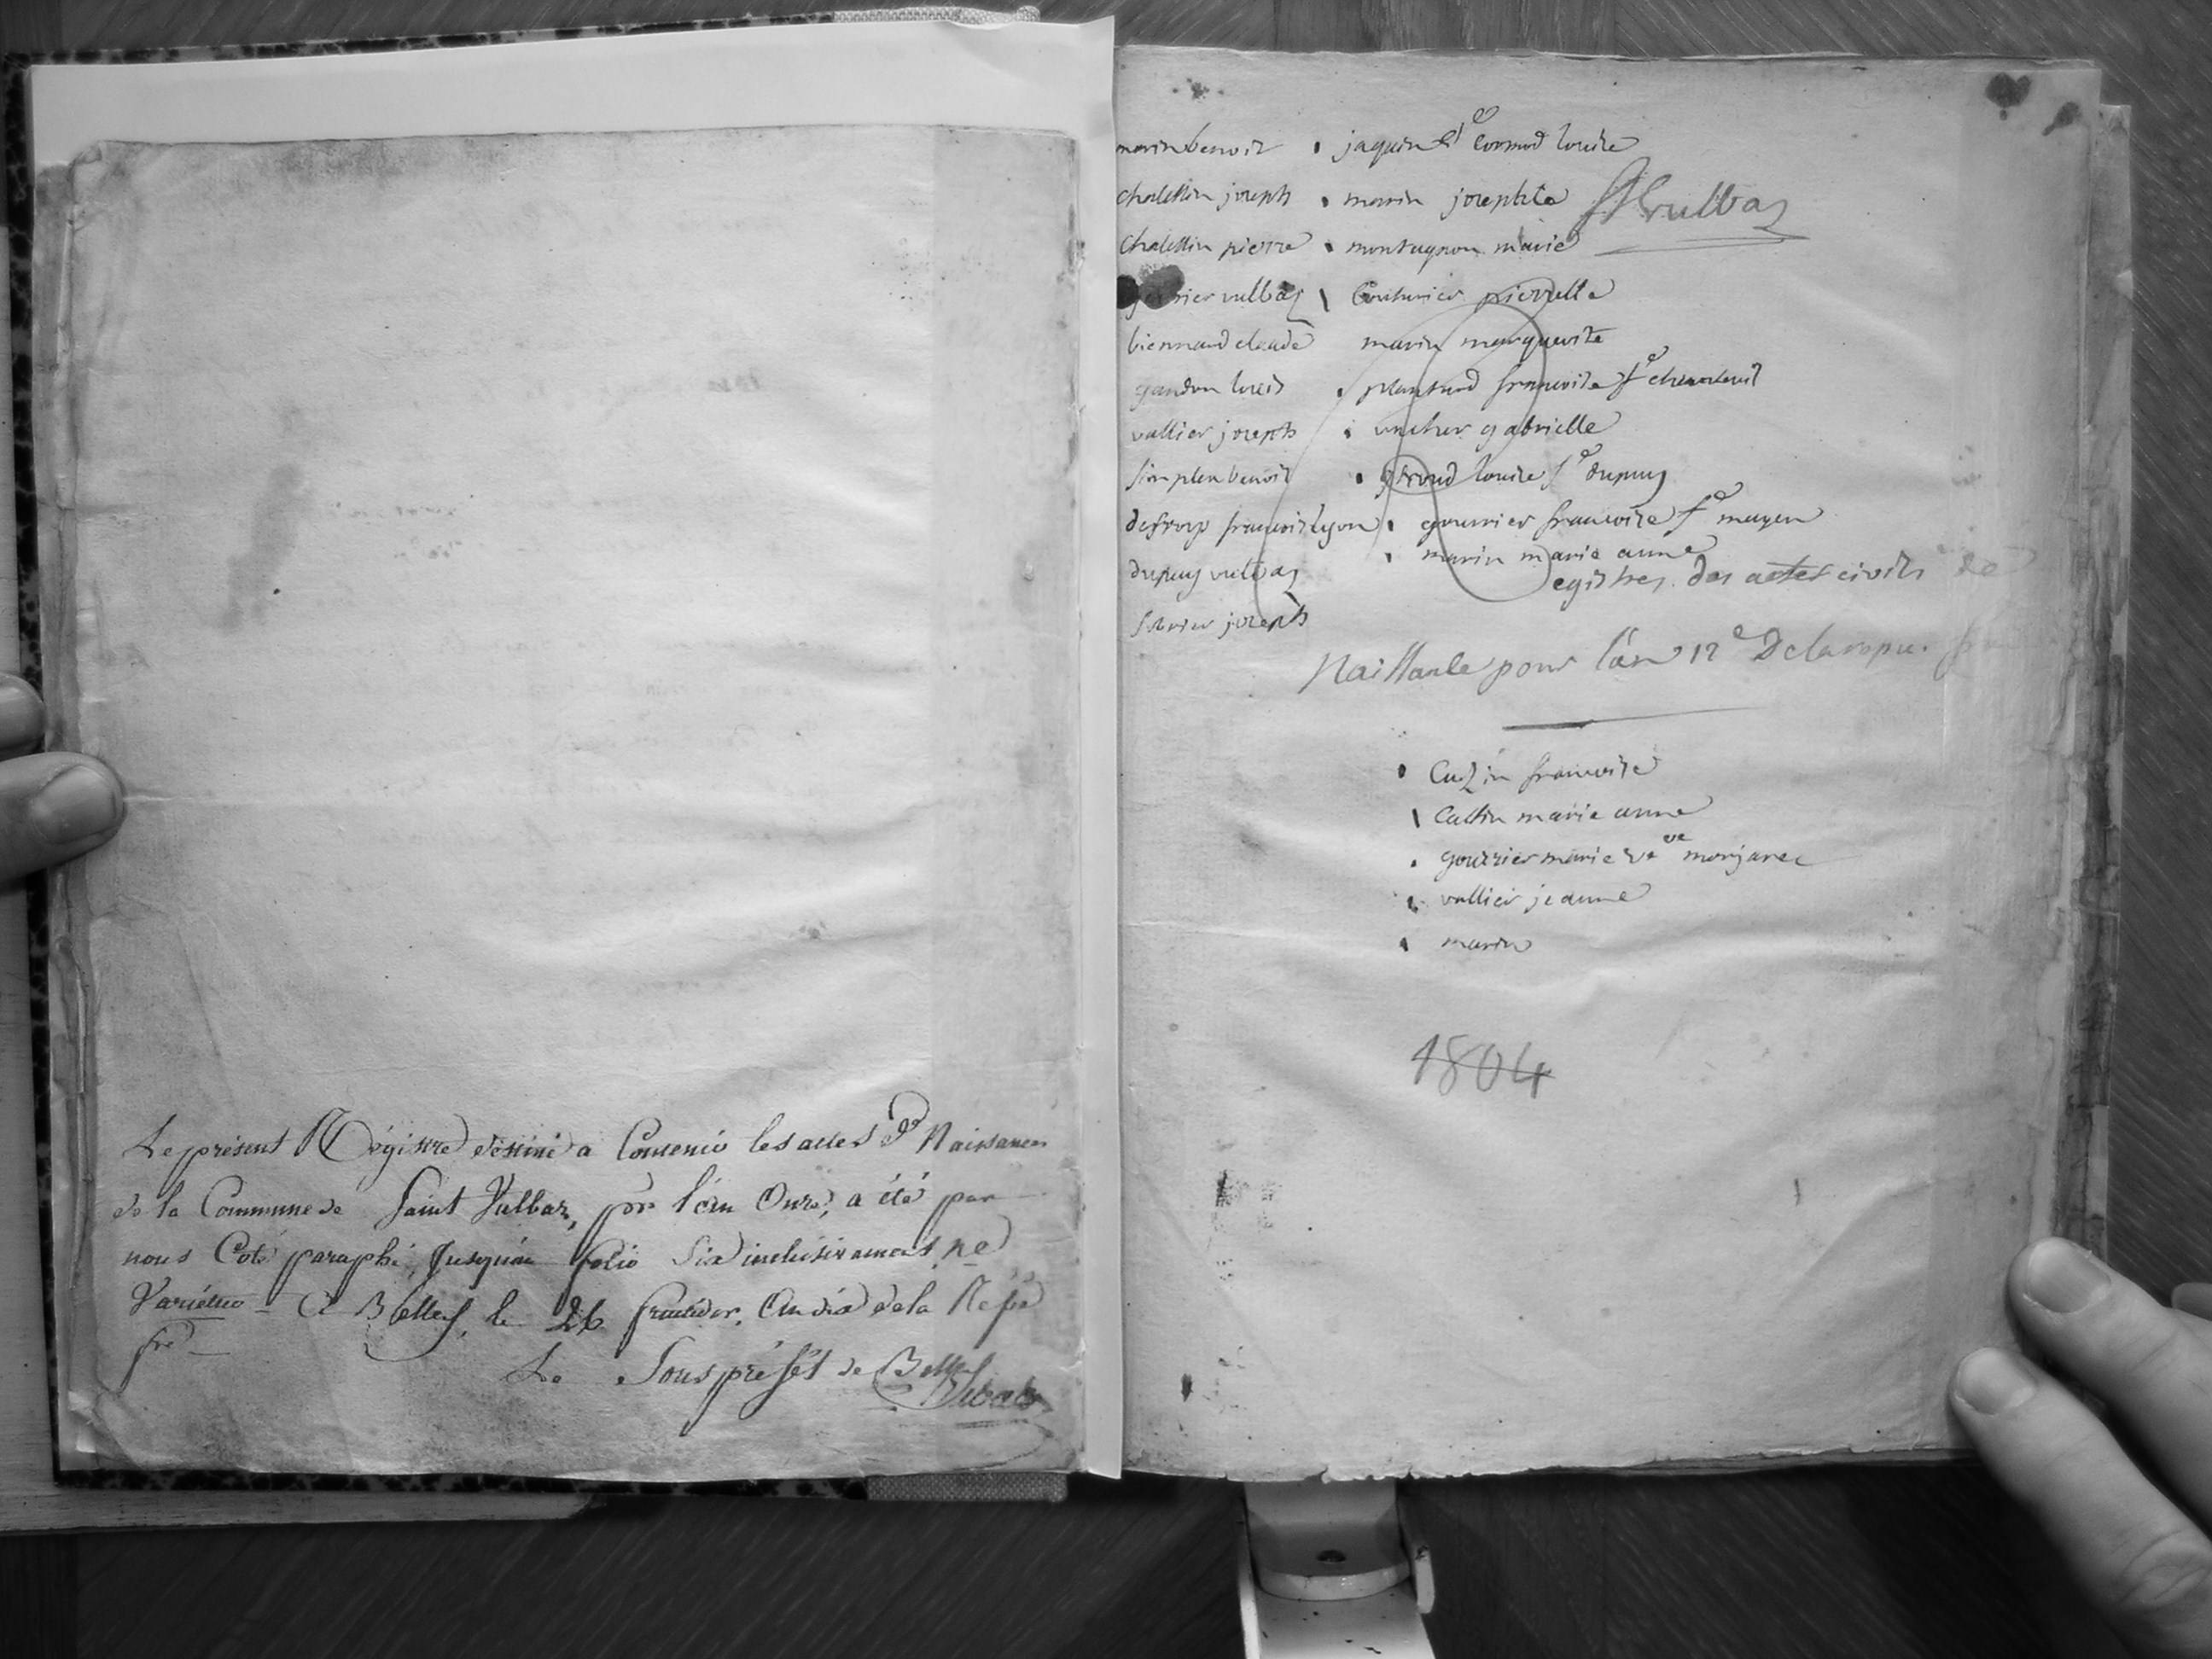 Le présent Régistre destiné a Contenir les actes de Naissances
de la Commune de Saint Vulbaz, por l'an Onze, a été par
nous Coté paraphé, Jusqu'au folio Six inclusivement, ne
Variétur - A Belley, le 26 fructidor, An dix de la Répe
fre
Le Sous préfét de Belley
marin benoit jaquin fe cormod louise
chalettin joseph marin josephte
St vulbaz
chalettin pierre montagnon marie
vulbaz Couturier pierrette
biennard claude marin marguerite
gandon louis plantard francoise fe
vallier joseph vacher gabrielle
simplex benoit giroud louise fe dupuy
francois lyon gourrier francoise fe mayen
dupuy vulbaz marin marie anne
Registres des actes civils de
joseph
Naissance pour l'an 12e De la repu.
Cuzin francoise
Cattin marie anne
gourrier marie ve monjarec
vallier jeanne
marin
1804